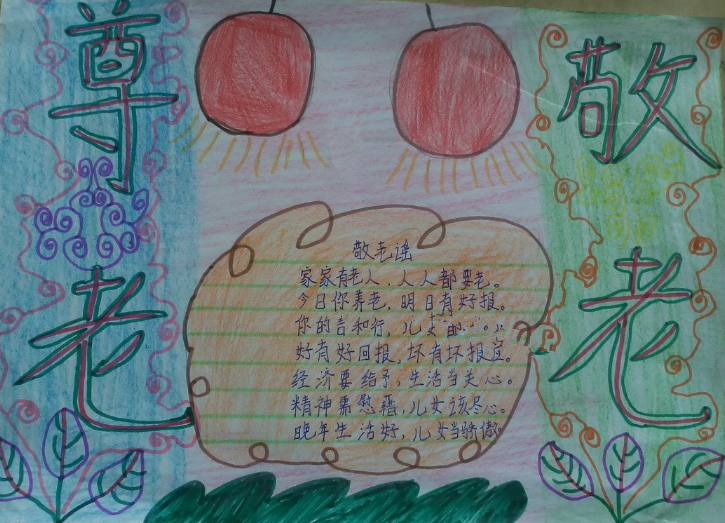 尊老
敬老
敬老谣
家家有老人，人人都要老。
今日你养老，明日有好报。
你的言和行，儿
好有好回报，坏有坏报应。
经济要给予，生活当关心。
精神需慰藉，儿女该尽心。
晚年生活好，儿女当骄傲。